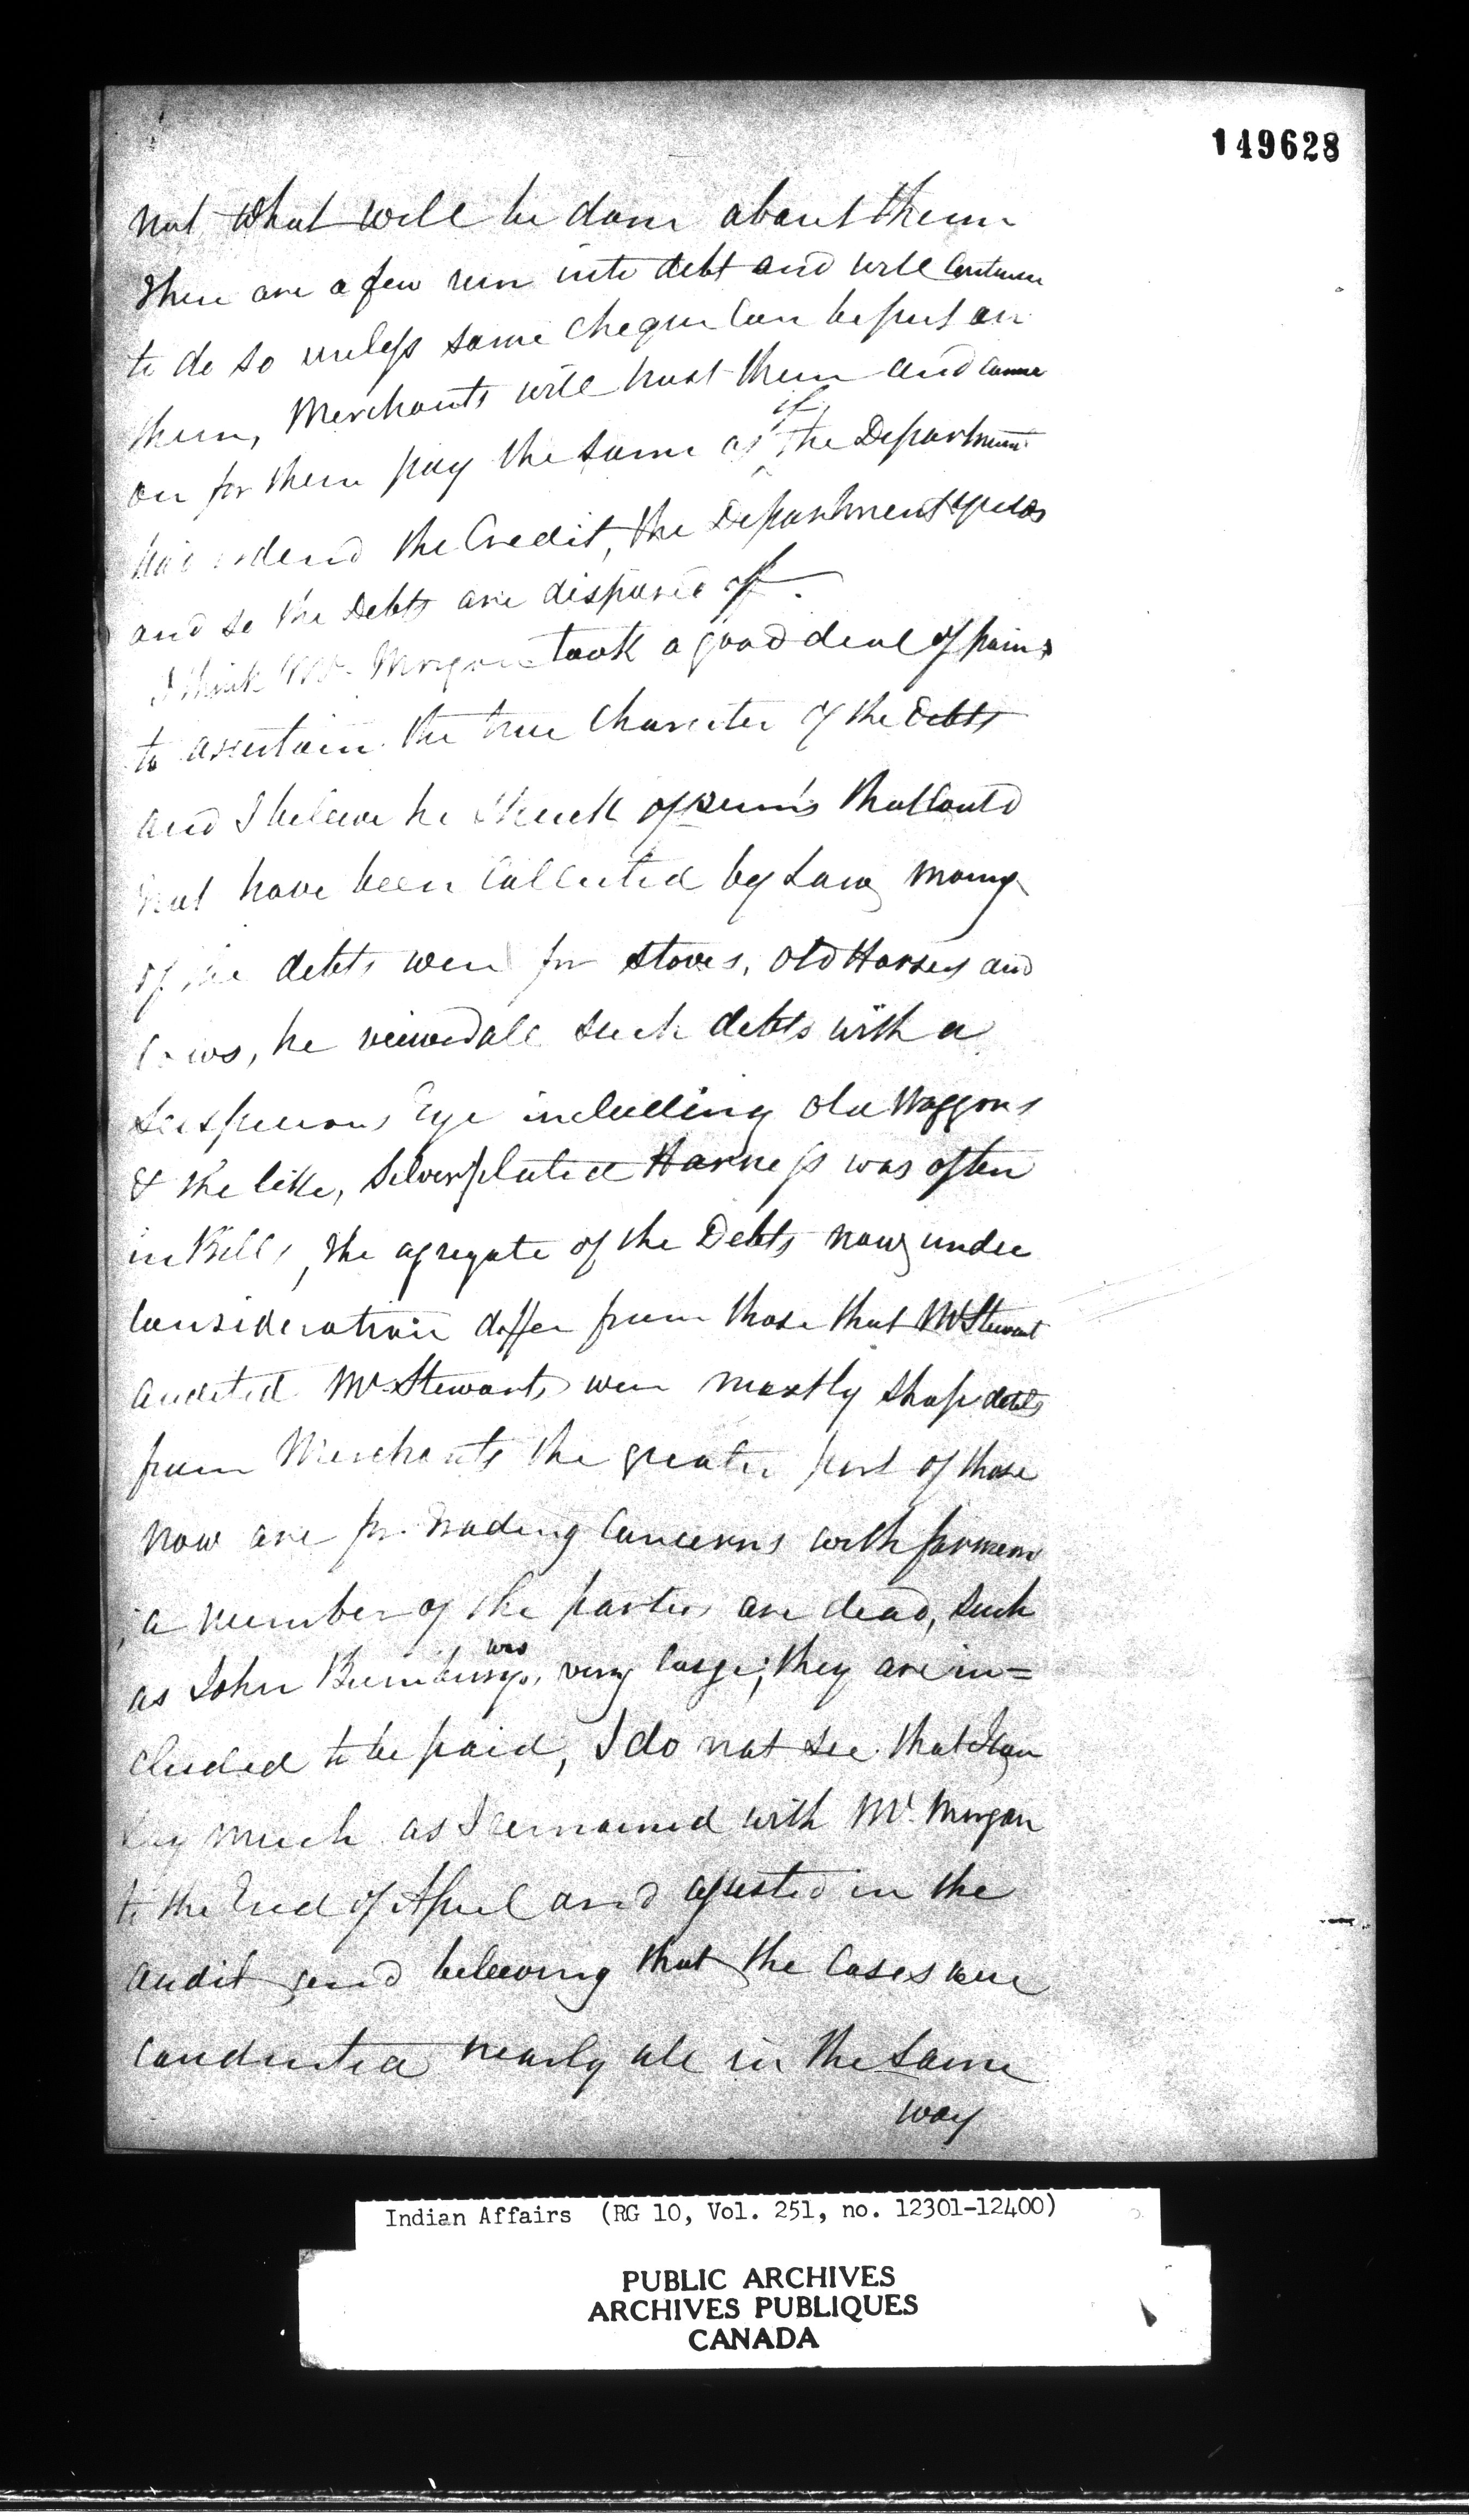 149628
not what will be done about them
There are a few run into debt and will continue
to do so unless some cheque can be put on
them, Merchants will trust them and come
on for their pay the same as if the Department
had ordered the Credit, the Department yields
and so the Debts are disposed off.
I think Mr Morgan took a good deal of pains
to ascertain the true Character of the Debts
and I beleive he struck of sum's that could
not have been Collected by Law, Many
of the debts were for stoves, Old Horses and
Cows, he viewed all such debts with a
suspicious Eye including old Waggons
& the like, Silverplated Harness was often
in Bills, the agregate of the Debts now under
Consideration differ from those that Mr Stewart
audited Mr Stewarts were mostly shop debts
from Merchants the greater part of those
now are for trading Concerns with farmers
a number of the parties are dead, such
as John was very large; they are in=
cluded to be paid, I do not see that I can
say much as I remained with Mr. Morgan
to the End of April and assisted in the
audit and beleeving that the Cases were
Conducted nearly all in the same
way
Indian Affairs (RG 10, Vol. 251, no. 12301-12400)
PUBLIC ARCHIVES
ARCHIVES PUBLIQUES
CANADA